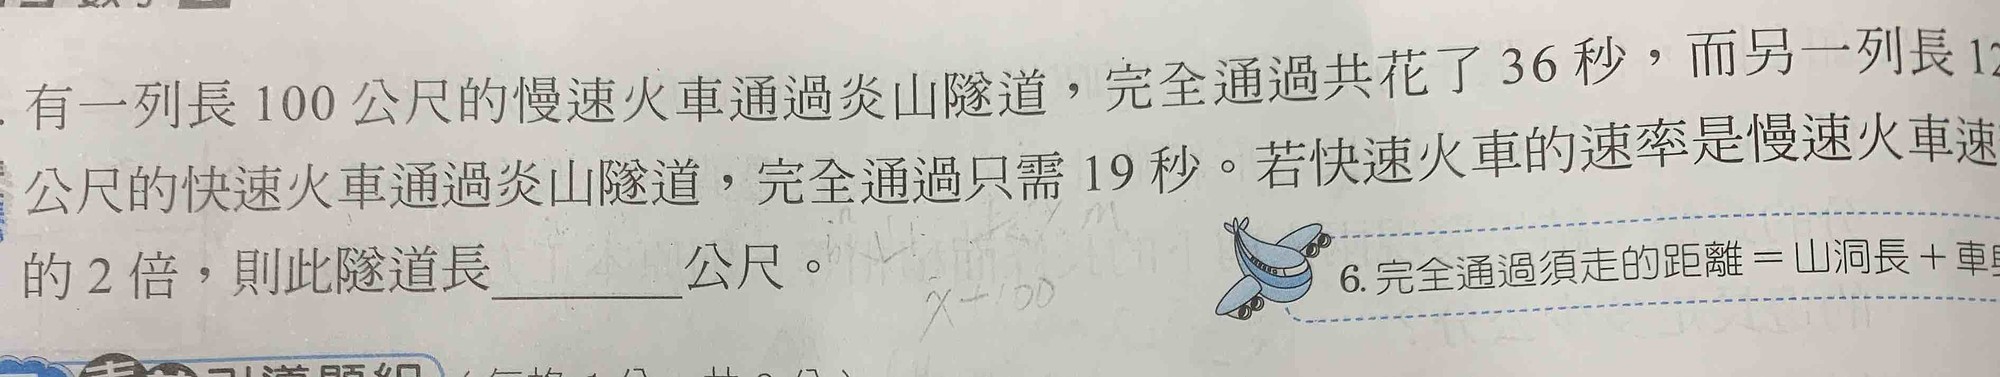 有一列長 100 公尺的慢速火車通過炎山隧道，完全通過共花了 36 秒，而另一列長 12
公尺的快速火車通過炎山隧道，完全通過只需 19 秒。若快速火車的速率是慢速火車速
的 2 倍，則此隧道長______公尺。
x+100
6. 完全通過須走的距離＝山洞長＋車